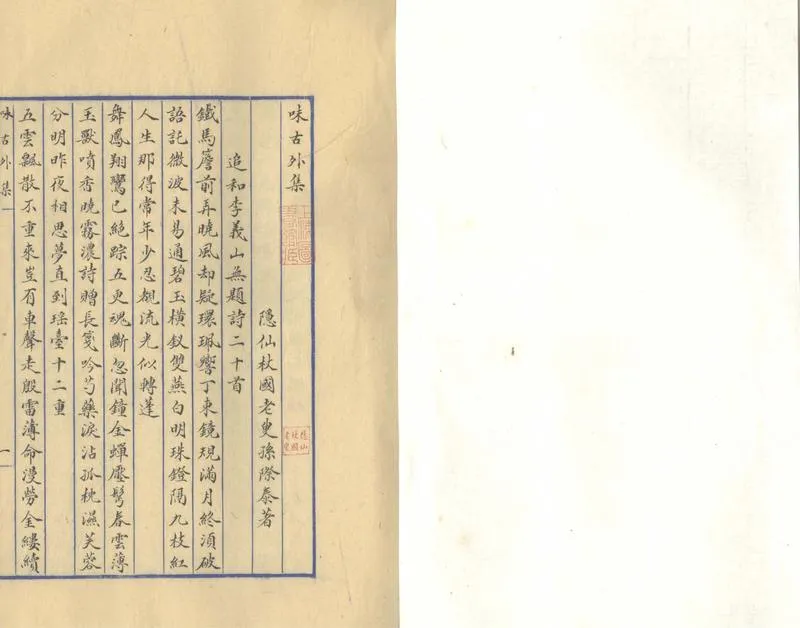 味古外集
上海圖書館藏
隱仙杖國老叟孫際泰著
隱仙杖國老叟
追和李義山無題詩二十首
鐵馬簷前弄曉風却疑環珮響丁東鏡規滿月終須破
語託微波未易通碧玉橫釵雙燕白明珠鐙隔九枝紅
人生那得常年少忍覩流光似轉蓬
舞鳳翔鸞已絕踪五更魂斷忽聞鐘金蟬壓鬢春雲薄
玉獸噴香曉霧濃詩贈長箋吟芍藥淚沾孤枕濕芙蓉
分明昨夜相思夢直到瑤臺十二重
五雲飄散不重來豈有車聲走殷雷薄命漫勞金縷續
味古外集 一